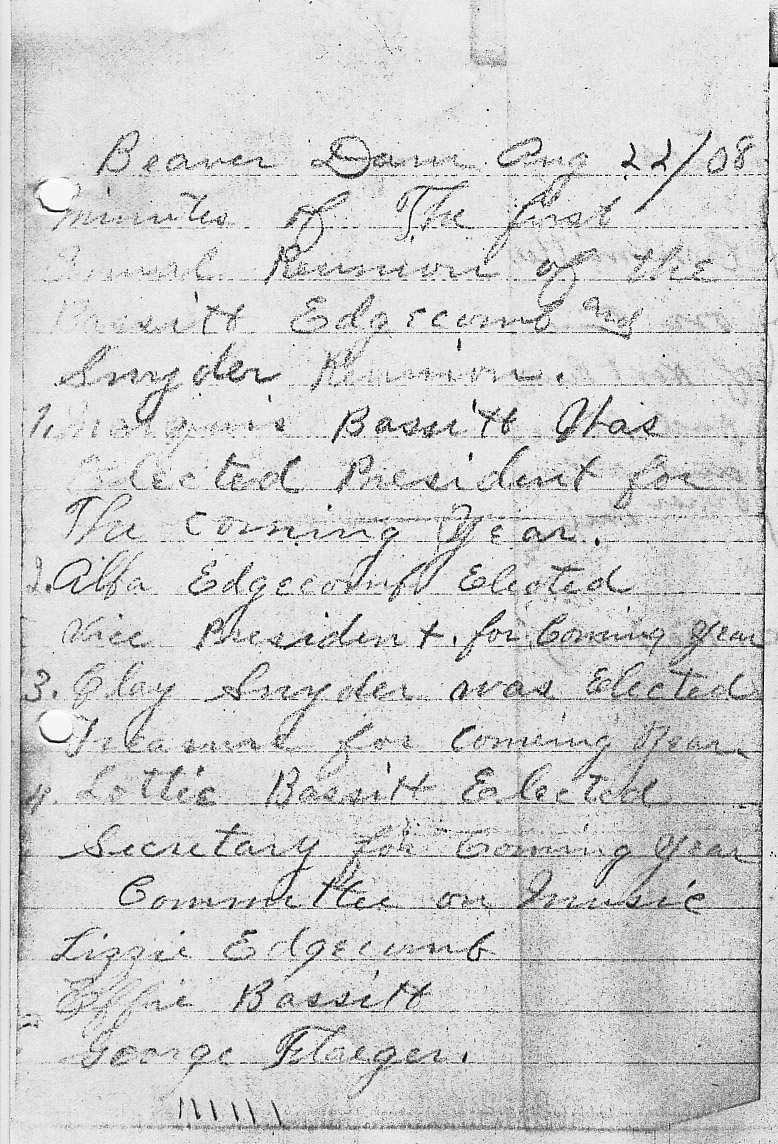 Beaver Dam Aug 22/08
Minutes of The first
Annual Reunion of the
Bassitt Edgecomb and
Snyder Reunion.
1. Marquis Bassitt Was
Elected President for
The coming Year.
2. Alfa Edgecomb Elected
Vice President. for Coming Year
3. Clay Snyder was Elected
Treasure for Coming Year
4. Lottie Bassitt Elected
Secretary for Coming Year
Committee on Music
Lizzie Edgecomb
Effie Bassitt
George